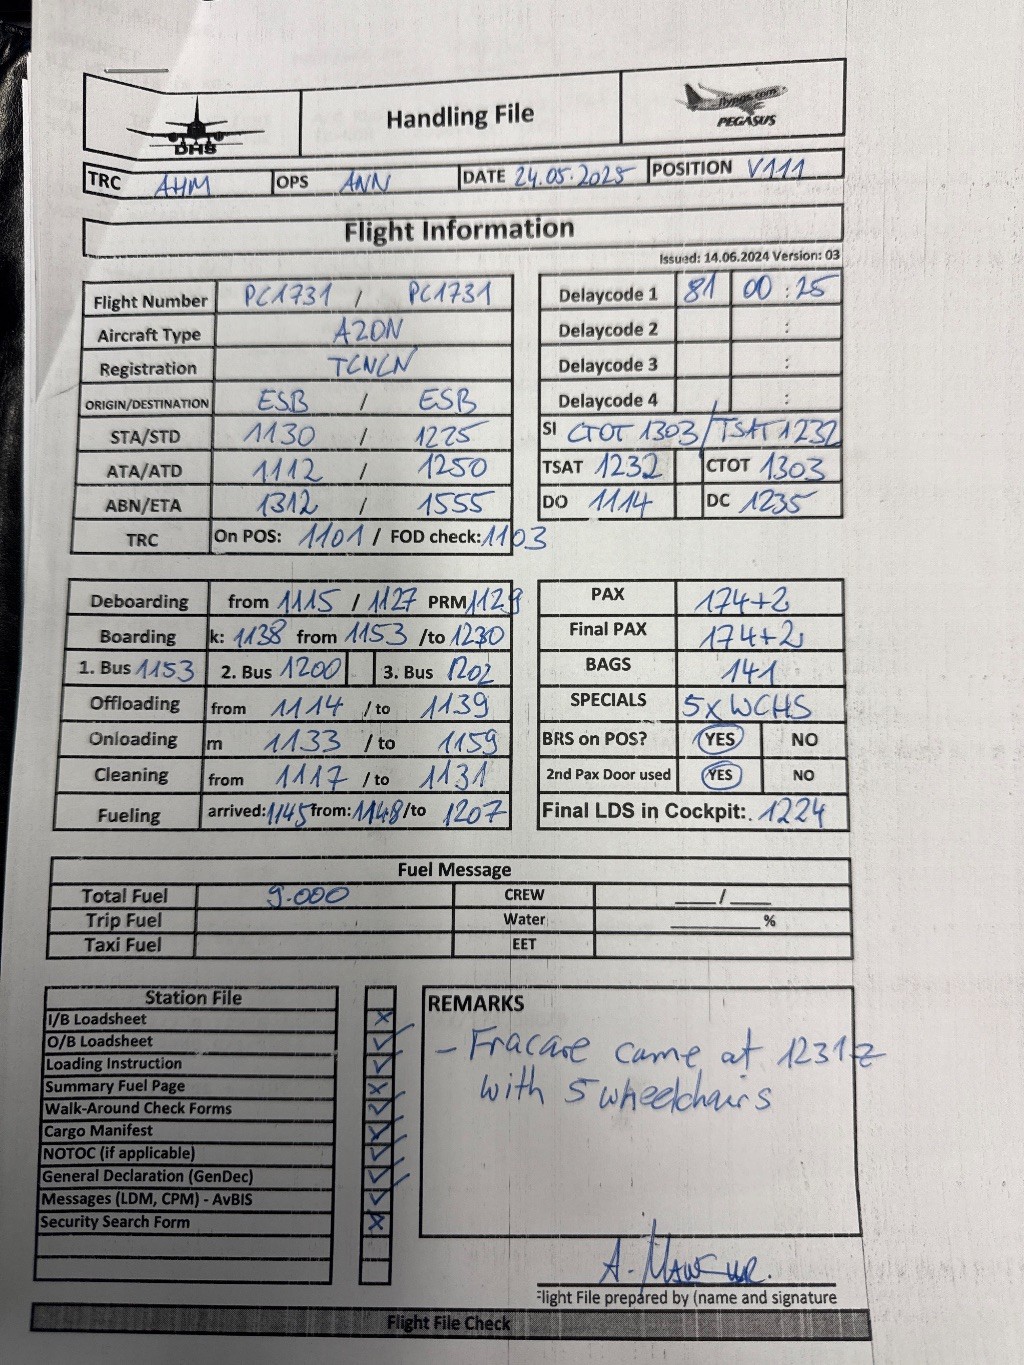 DHS
Handling File
flypgs.com
PEGASUS
TRC AHM OPS ANN DATE 24.05.2025 POSITION V111
Flight Information
Issued: 14.06.2024 Version: 03
Flight Number PC1731 / PC1731
Aircraft Type A20N
Registration TCNCN
ORIGIN/DESTINATION ESB / ESB
STA/STD 1130 / 1225
ATA/ATD 1112 / 1250
ABN/ETA 1312 / 1555
TRC On POS: 1101 / FOD check: 1103
Delaycode 1 81 00:25
Delaycode 2 :
Delaycode 3 :
Delaycode 4 :
SI CTOT 1303 / TSAT 1232
TSAT 1232 CTOT 1303
DO 1114 DC 1235
Deboarding from 1115 / 1127 PRM 1129
Boarding k: 1138 from 1153 /to 1230
1. Bus 1153 2. Bus 1200 3. Bus 1202
Offloading from 1114 / to 1139
Onloading m 1133 / to 1159
Cleaning from 1117 / to 1131
Fueling arrived: 1145 from: 1148 /to 1207
PAX 174+2
Final PAX 174+2
BAGS 141
SPECIALS 5xWCHS
BRS on POS? YES NO
2nd Pax Door used YES NO
Final LDS in Cockpit:. 1224
Fuel Message
Total Fuel 9.000 CREW ____/____
Trip Fuel Water _________%
Taxi Fuel EET
Station File
I/B Loadsheet
O/B Loadsheet
Loading Instruction
Summary Fuel Page
Walk-Around Check Forms
Cargo Manifest
NOTOC (if applicable)
General Declaration (GenDec)
Messages (LDM, CPM) - AvBIS
Security Search Form
REMARKS
- Fracare came at 1231z
with 5 wheelchairs
Flight File prepared by (name and signature
Flight File Check